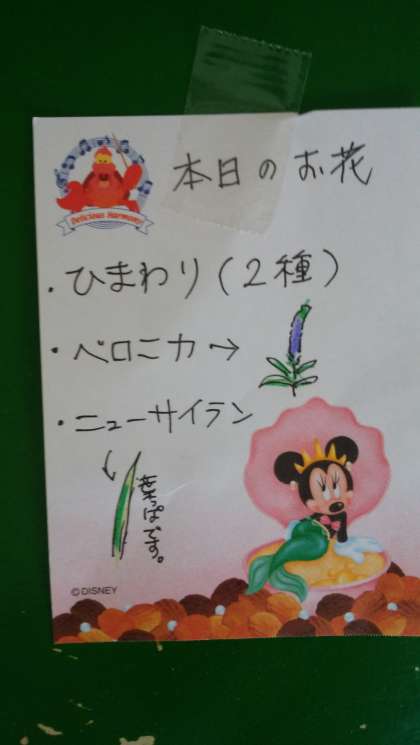 Delicious Harmony!
本日のお花
・ひまわり(2種)
・ベロニカ→
・ニューサイラン
葉っぱです。
© DISNEY